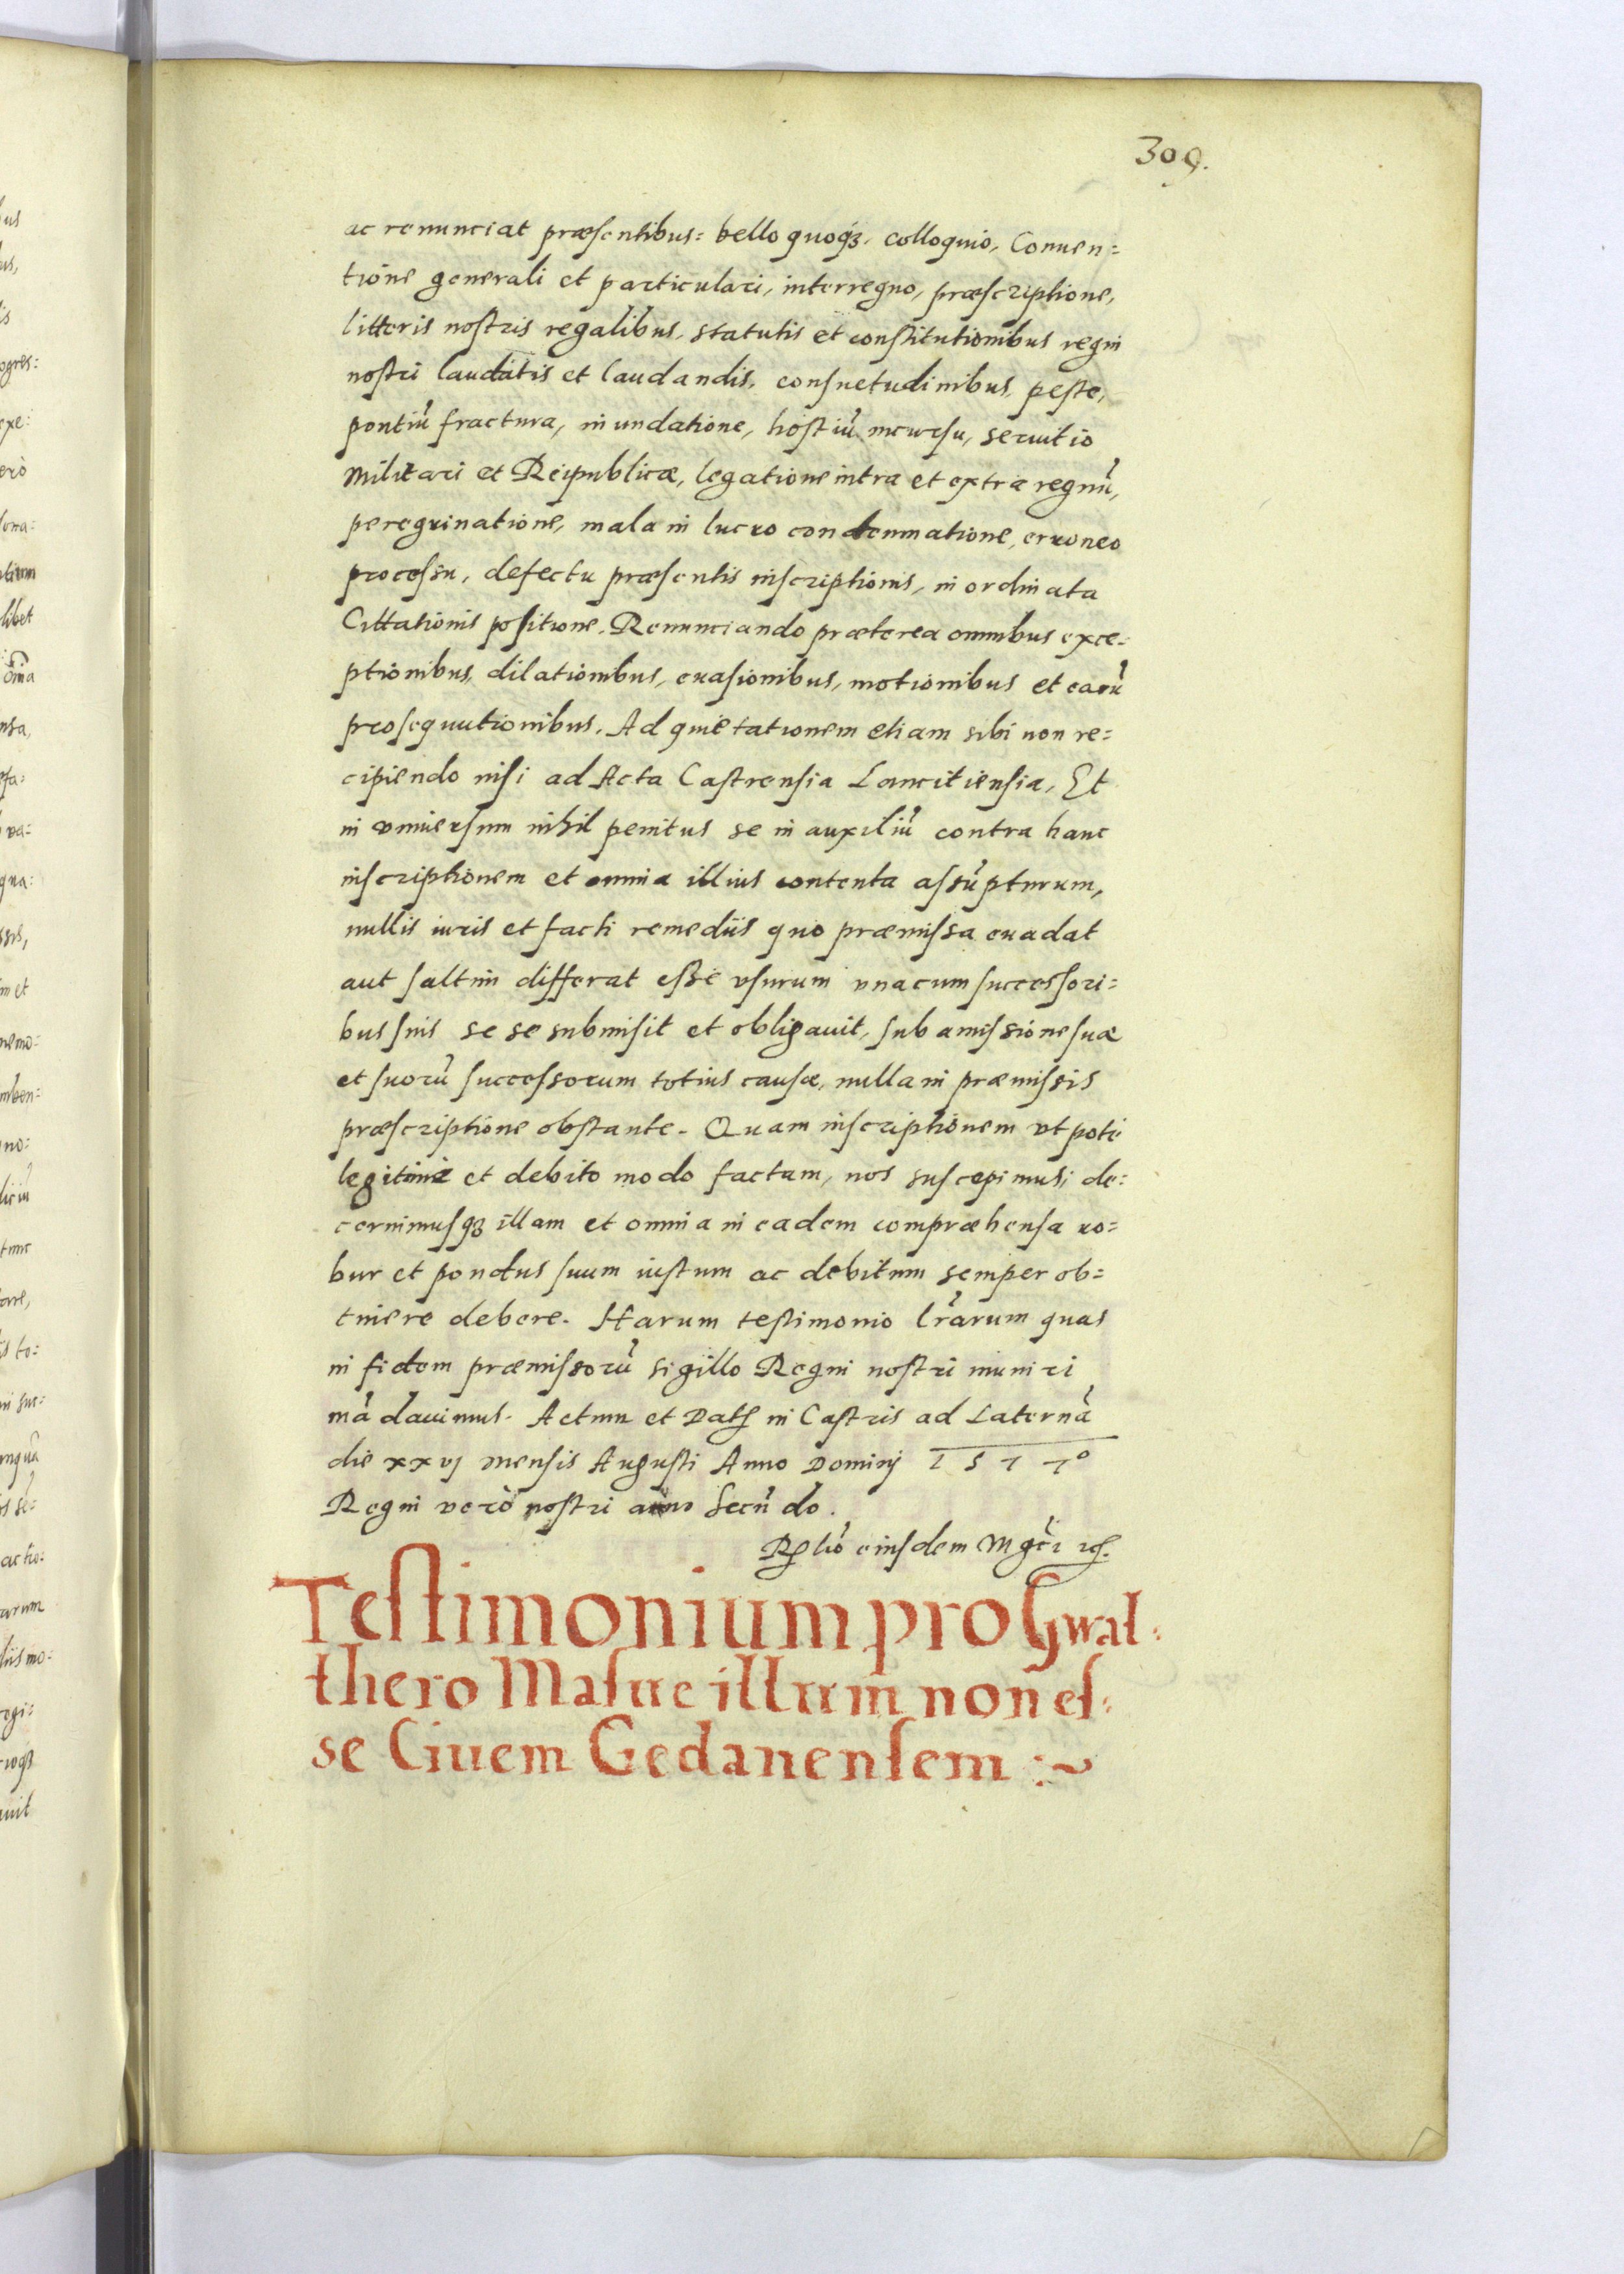 309.
ac renunciat præsentibus: bello quoqȝ, colloquio, Conuen=
tione generali et particulari, interregno, præscriptione,
litteris nostris regalibus, statutis et constitutionibus regni
nostri laudatis et laudandis, consuetudinibus, peste,
pontiũ fractura, inundatione, hostiũ incursu, seruitio
militari et Reipublicæ, legatione intra et extra regnũ,
peregrinatione, mala in lucro condemnatione, erroneo
processu, defectu præsentis inscriptionis, in ordinata
Cittationis positione. Renunciando præterea omnibus exce=
ptionibus, dilationibus, euasionibus, motionibus et earũ
prosequutionibus. Ad quietationem etiam sibi non re=
cipiendo nisi ad Acta Castrensia Lancitiensia, Et
in vniuersum nihil penitus se in auxiliũ contra hanc
inscriptionem et omnia illius contenta assũpturum,
nullis iuris et facti remediis quo præmissa euadat
aut saltim differat esse vsurum vnacum successori=
bus suis se se submisit et obligauit, sub amissione suæ
et suorũ successorum totius causæ, nulla in præmissis
præscriptione obstante. Quam inscriptionem vt poté
legitimè et debito modo factam, nos suscepimus, de=
cernimusqȝ illam et omnia in eadem compræhensa ro=
bur et pondus suum iustum ac debitum semper ob=
tinere debere. Harum testimonio lr̃arum quas
in fidem præmissorũ sigillo Regni nostri muniri
mãdauimus. Actum et Dat in Castris ad Laternã
die xxvj mensis Augusti Anno Dominj 1577°
Regni verò nostri anno Secũdo.
eiusdem
Testimonium pro Gwal=
thero Masue illum non es=
se Ciuem Gedanensem :~